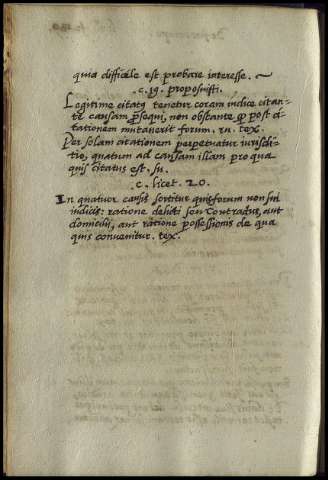 quia difficile est probare interesse. ~
.c. 19. proposuisti.
Legitime citatus tenetur coram iudice citan-
te causam prosequi, non obstante quod post ci-
tationem mutaverit forum. tex.
Per solam citationem perpetuatur iurisdi-
tio, quatum ad causam illam pro qua
quis citatus est. su.
c. licet. 20.
In quatuor causis sortitur quis forum non sui
iudicis: ratione delicti seu Contractus, aut
domicilii, aut ratione possessionis de qua
quis convenitur. tex.